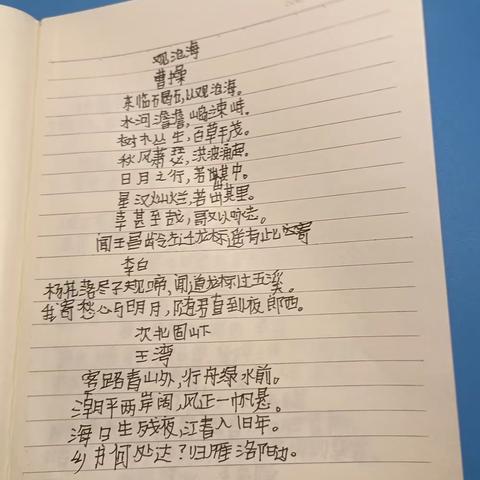 观沧海
曹操
东临碣石,以观沧海。
水河澹澹,山岛竦峙。
树木丛生,百草丰茂。
秋风萧瑟,洪波涌起。
日月之行,若出其中。
星汉灿烂,若出其里。
幸甚至哉,歌以咏志。
闻王昌龄左迁龙标遥有此寄
李白
杨花落尽子规啼,闻道龙标过五溪。
我寄愁心与明月,随君直到夜郎西。
次北固山下
王湾
客路青山外,行舟绿水前。
潮平两岸阔,风正一帆悬。
海日生残夜,江春入旧年。
乡书何处达?归雁洛阳边。